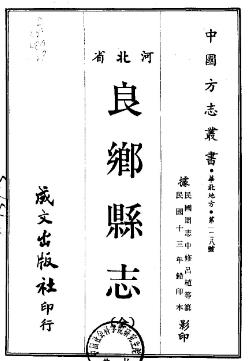 中國方志叢書•華北地方•第一二八號
據民國周志中修呂植等纂
民國十三年鉛印本
影印
河北省
良鄉縣志
(全)
成文出版社印行